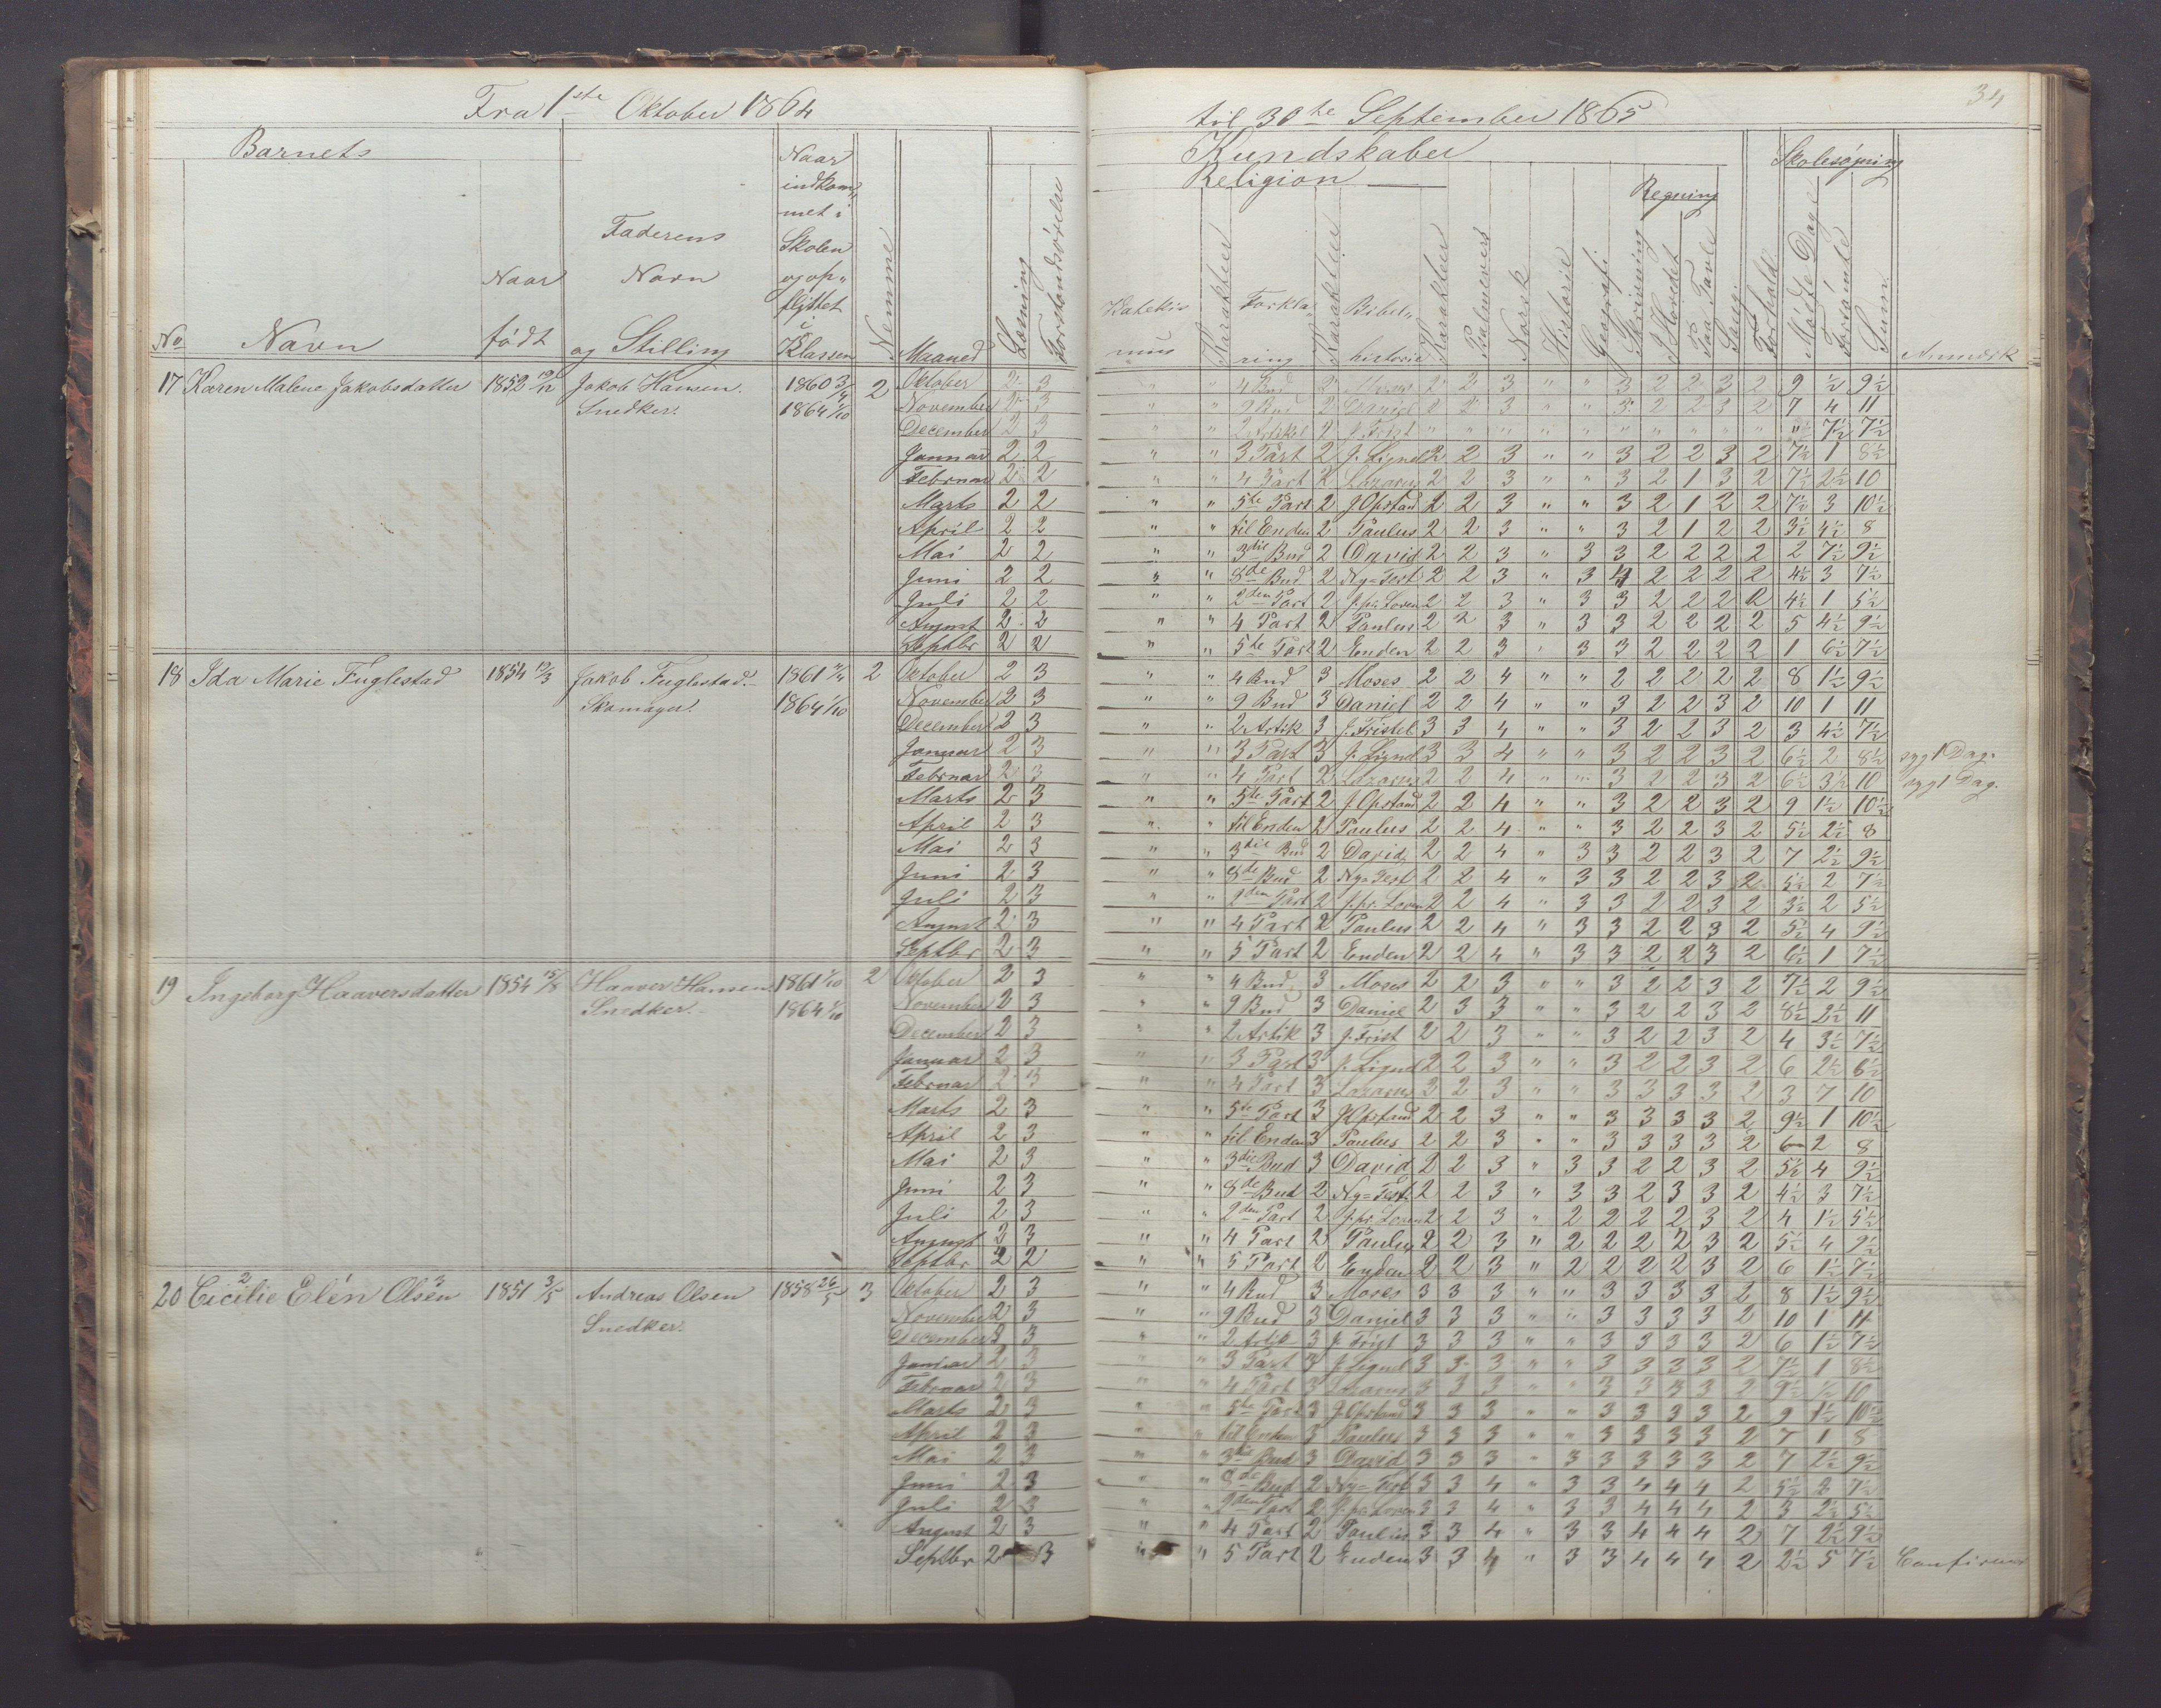 Fra 1ste Oktober 1864 til 30te September 1865
34
Barnets
Kundskaber
Skolesøgning
Religion
Regning
No
Navn
Naar født
Faderens Navn og Stilling
Naar indkommet i Skolen og opflyttet i Klassen
Nemme
Maaned
Læsning
Forstandsøvelse
Katekismus
Karakteer
Forklaring
Karakteer
Bibelhistorie
Karakteer
Psalmevers
Norsk
Historie
Geografi
Skrivning
I Hovedet
Paa Tavle
Sang
Forhold
Mødte Dage
Forsømte
Sum
Anmærk
17 Karen Malene Jakobsdatter 1852 19/12 Jakob Hansen. 1860 3/4 2
Snedker. 1864 1/10
Oktober 2 3 " " 4 Bud 2 Moses 2 2 3 " " 3 2 2 3 2 9 ½ 9½
November 2 3 " " 9 Bud 2 Daniel 2 2 3 " " 3 2 2 3 2 7 4 11
December 2 3 " " 2 Artikel 2 J. Frist " " " " " " " " " " "½ 7½ 7½
Januar 2 2 " " 3 Part 2 J. Lignel 2 2 3 " " 3 2 2 3 2 7½ 1 8½
Februar 2 2 " " 4 Part 2 Lazarus 2 2 3 " " 3 2 1 3 2 7½ 2½ 10
Marts 2 2 " " 5te Part 2 J. Opstand 2 2 3 " " 3 2 1 2 2 7½ 3 10½
April 2 2 " " til Enden 2 Paulus 2 2 3 " " 3 2 1 2 2 3½ 4½ 8
Mai 2 2 " " 3die Bud 2 David 2 2 3 " 3 3 2 2 2 2 2 7½ 9½
Juni 2 2 " " 8de Bud 2 Ny=Test 2 2 3 " 3 4 2 2 2 2 4½ 3 7½
Juli 2 2 " " 2den Part 2 J. pr. Loven 2 2 3 " 3 3 2 2 2 2 4½ 1 5½
August 2 2 " " 4 Part 2 Paulus 2 2 3 " 3 3 2 2 2 2 5 4½ 9½
Septbr 2 2 " " 5te Part 2 Enden 2 2 3 " 3 3 2 2 2 2 1 6½ 7½
18 Ida Marie Fuglestad 1854 12/3 Jakob Fuglestad. 1861 4/4 2
Skomager. 1864 1/10
Oktober 2 3 " " 4 Bud 3 Moses 2 2 4 " " 2 2 2 2 2 8 1½ 9½
November 2 3 " " 9 Bud 3 Daniel 2 2 4 " " 3 2 2 3 2 10 1 11
December 2 3 " " 2 Artik 3 J. Fristel 3 3 4 " " 3 2 2 3 2 3 4½ 7½
Januar 2 3 " " 3 Part 3 J. Lignel 3 3 4 " " 3 2 2 3 2 6½ 2 8½ syg 1 Dag.
Februar 2 3 " " 4 Part 2 Lazarus 2 2 4 " " 3 2 2 3 2 6½ 3½ 10 syg 1 Dag.
Marts 2 3 " " 5te Part 2 J. Opstand 2 2 4 " " 3 2 2 3 2 9 1½ 10½
April 2 3 " " til Enden 2 Paulus 2 2 4 " " 3 2 2 3 2 5½ 2½ 8
Mai 2 3 " " 3die Bud 2 David 2 2 4 " 3 3 2 2 3 2 7 2½ 9½
Juni 2 3 " " 8de Bud 2 Ny=Test 2 2 4 " 3 3 2 2 3 2 5½ 2 7½
Juli 2 3 " " 2den Part 2 J. pr. Loven 2 2 4 " 3 3 2 2 3 2 3½ 2 5½
August 2 3 " " 4 Part 2 Paulus 2 2 4 " 3 3 2 2 3 2 5½ 4 9½
Septbr 2 3 " " 5 Part 2 Enden 2 2 4 " 3 3 2 2 3 2 6½ 1 7½
19 Ingeborg Haaversdatter 1854 15/8 Haaver Hansen 1861 1/10 2
Snedker. 1864 1/10
Oktober 2 3 " " 4 Bud 3 Moses 2 2 3 " " 3 2 2 3 2 7½ 2 9½
November 2 3 " " 9 Bud 3 Daniel 2 3 3 " " 3 2 2 3 2 8½ 2½ 11
December 2 3 " " 2 Artik 3 J. Frist 2 2 3 " " 3 2 2 3 2 4 3½ 7½
Januar 2 3 " " 3 Part 3 J. Lignel 2 2 3 " " 3 2 2 3 2 6 2½ 8½
Februar 2 3 " " 4 Part 3 Lazarus 3 2 3 " " 3 3 3 3 2 3 7 10
Marts 2 3 " " 5te Part 3 J. Opstand 2 2 3 " " 3 3 3 3 2 9½ 1 10½
April 2 3 " " til Enden 3 Paulus 2 2 3 " " 3 3 3 3 2 6 2 8
Mai 2 3 " " 3die Bud 3 David 2 2 3 " 3 3 2 2 3 2 5½ 4 9½
Juni 2 3 " " 8de Bud 2 Ny=Test. 2 2 3 " 3 3 2 3 3 2 4½ 3 7½
Juli 2 3 " " 2den Part 2 J. pr. Loven 2 2 3 " 2 2 2 2 3 2 4 1½ 5½
August 2 3 " " 4 Part 2 Paulus 2 2 3 " 2 2 2 2 3 2 5½ 4 9½
Septbr 2 2 " " 5 Part 2 Enden 2 2 3 " 2 2 2 2 3 2 6 1½ 7½
20 Cicilie Elén Olsen 1851 3/5 Andreas Olsen 1858 26/5 3
Snedker.
Oktober 2 3 " " 4 Bud 3 Moses 3 3 3 " " 3 3 3 3 2 8 1½ 9½
November 2 3 " " 9 Bud 3 Daniel 3 3 3 " " 3 3 3 3 2 10 1 11
December 2 3 " " 2 Artik 3 J. Frist 3 3 3 " " 3 3 3 3 2 6 1½ 7½
Januar 2 3 " " 3 Part 3 J. Lignel 3 3 3 " " 3 3 3 3 2 7½ 1 8½
Februar 2 3 " " 4 Part 3 Lazarus 3 3 3 " " 3 3 3 3 2 9½ ½ 10
Marts 2 3 " " 5te Part 3 J. Opstand 3 3 3 " " 3 3 3 3 2 9 1½ 10½
April 2 3 " " til Enden 3 Paulus 3 3 3 " " 3 3 3 3 2 7 1 8
Mai 2 3 " " 3die Bud 3 David 3 3 3 " 3 3 3 3 3 2 7 2½ 9½
Juni 2 3 " " 8de Bud 2 Ny=Test 3 3 4 " 3 3 4 4 4 2 5½ 2 7½
Juli 2 3 " " 2den Part 2 J. pr. Loven 3 3 4 " 3 3 4 4 4 2 3 2½ 5½
August 2 3 " " 4 Part 2 Paulus 3 3 4 " 3 3 4 4 4 2 7 2½ 9½
Septbr 2 3 " " 5 Part 2 Enden 3 3 4 " 3 3 4 4 4 2 2½ 5 7½ Confirmer